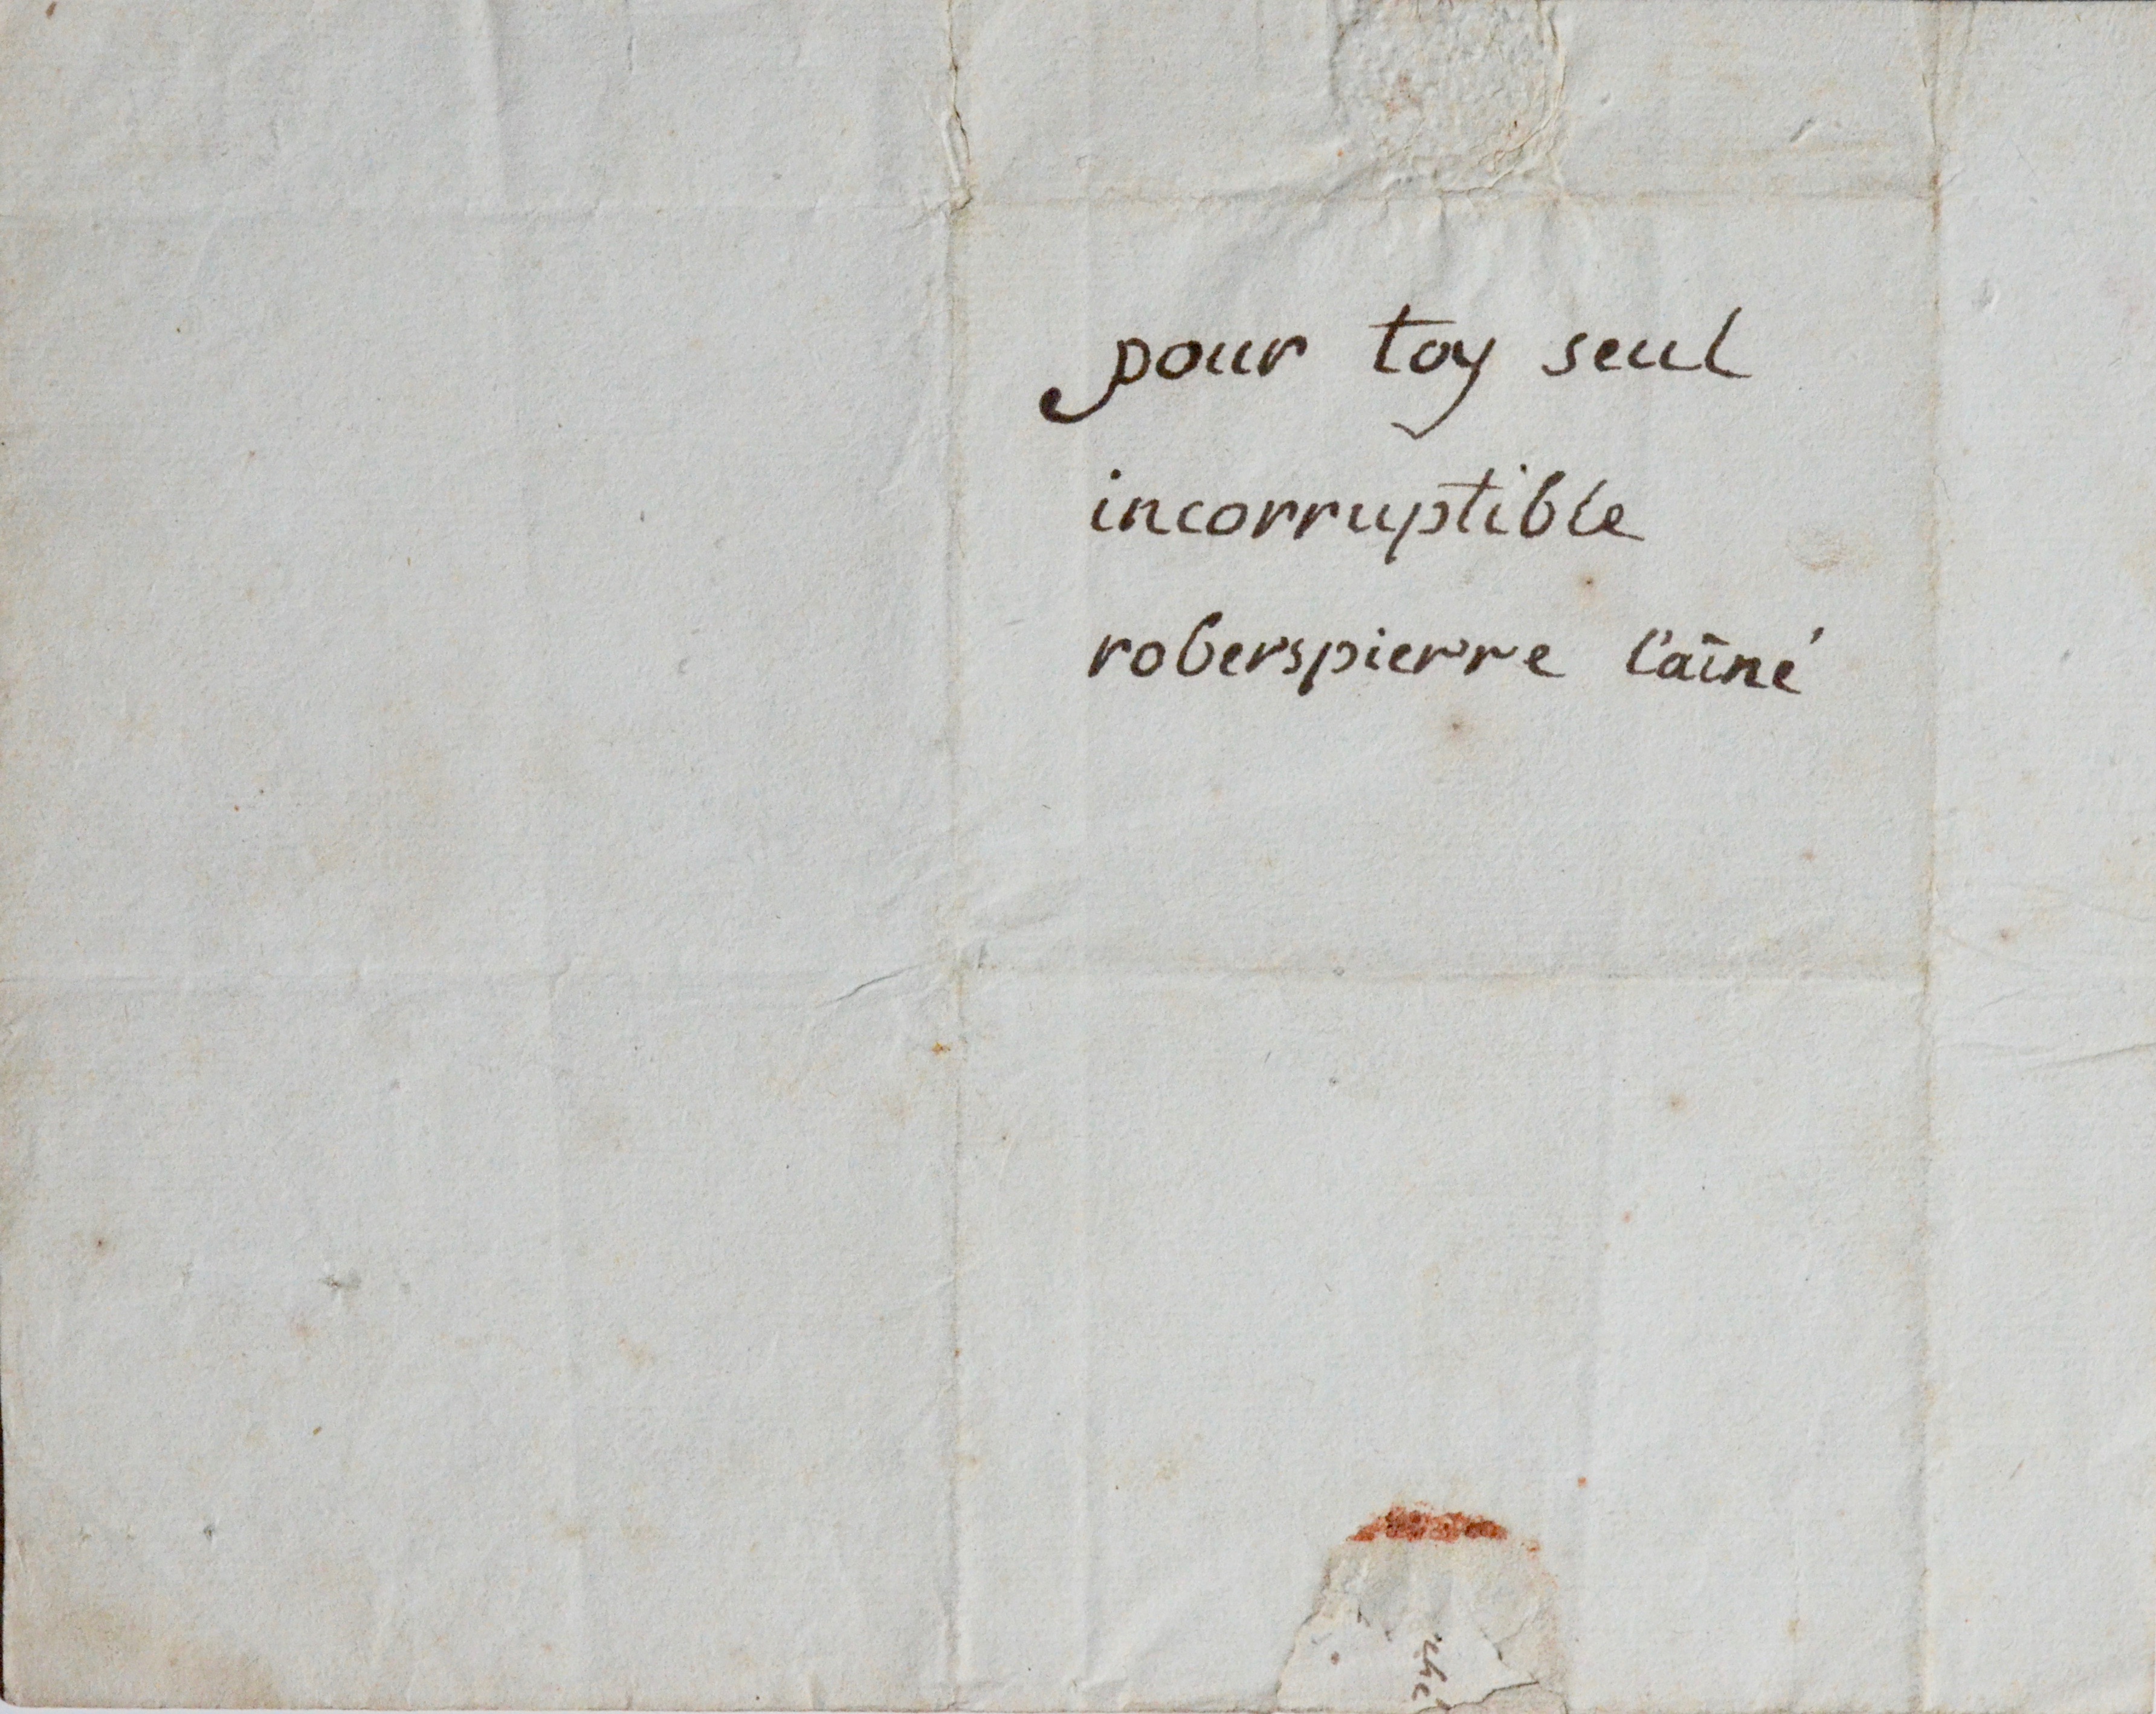 pour toy seul
incorruptible
roberspierre l'aîné